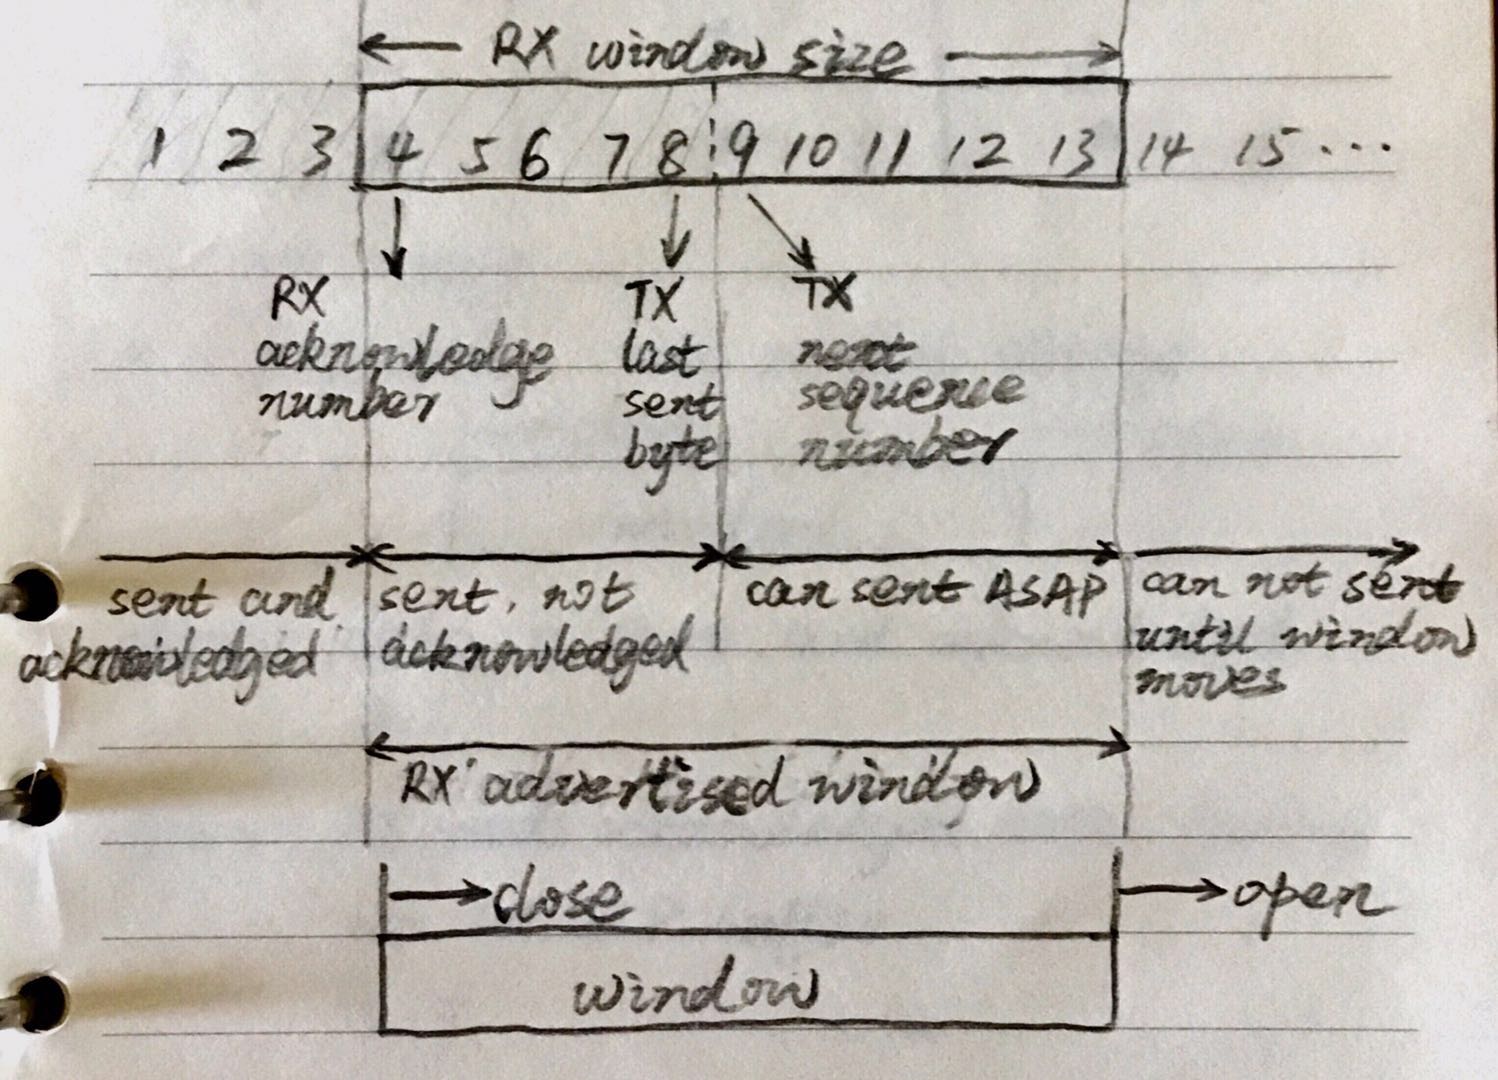 RX window size
1 2 3 4 5 6 7 8 9 10 11 12 13 14 15 ...
RX
acknowledge
number
TX
last
sent
byte
TX
next
sequence
number
sent and
acknowledged
sent, not
acknowledged
can sent ASAP
can not sent
until window
moves
RX' advertised window
close
open
window